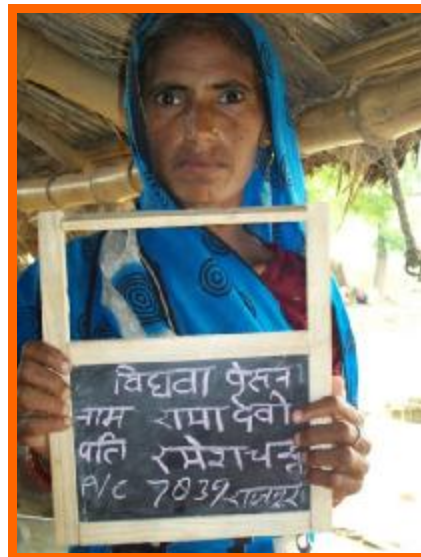 विघवा पेंसन
नाम रामा देवी
पति रमेशचन्द्र
A/C 7039 राजपुर